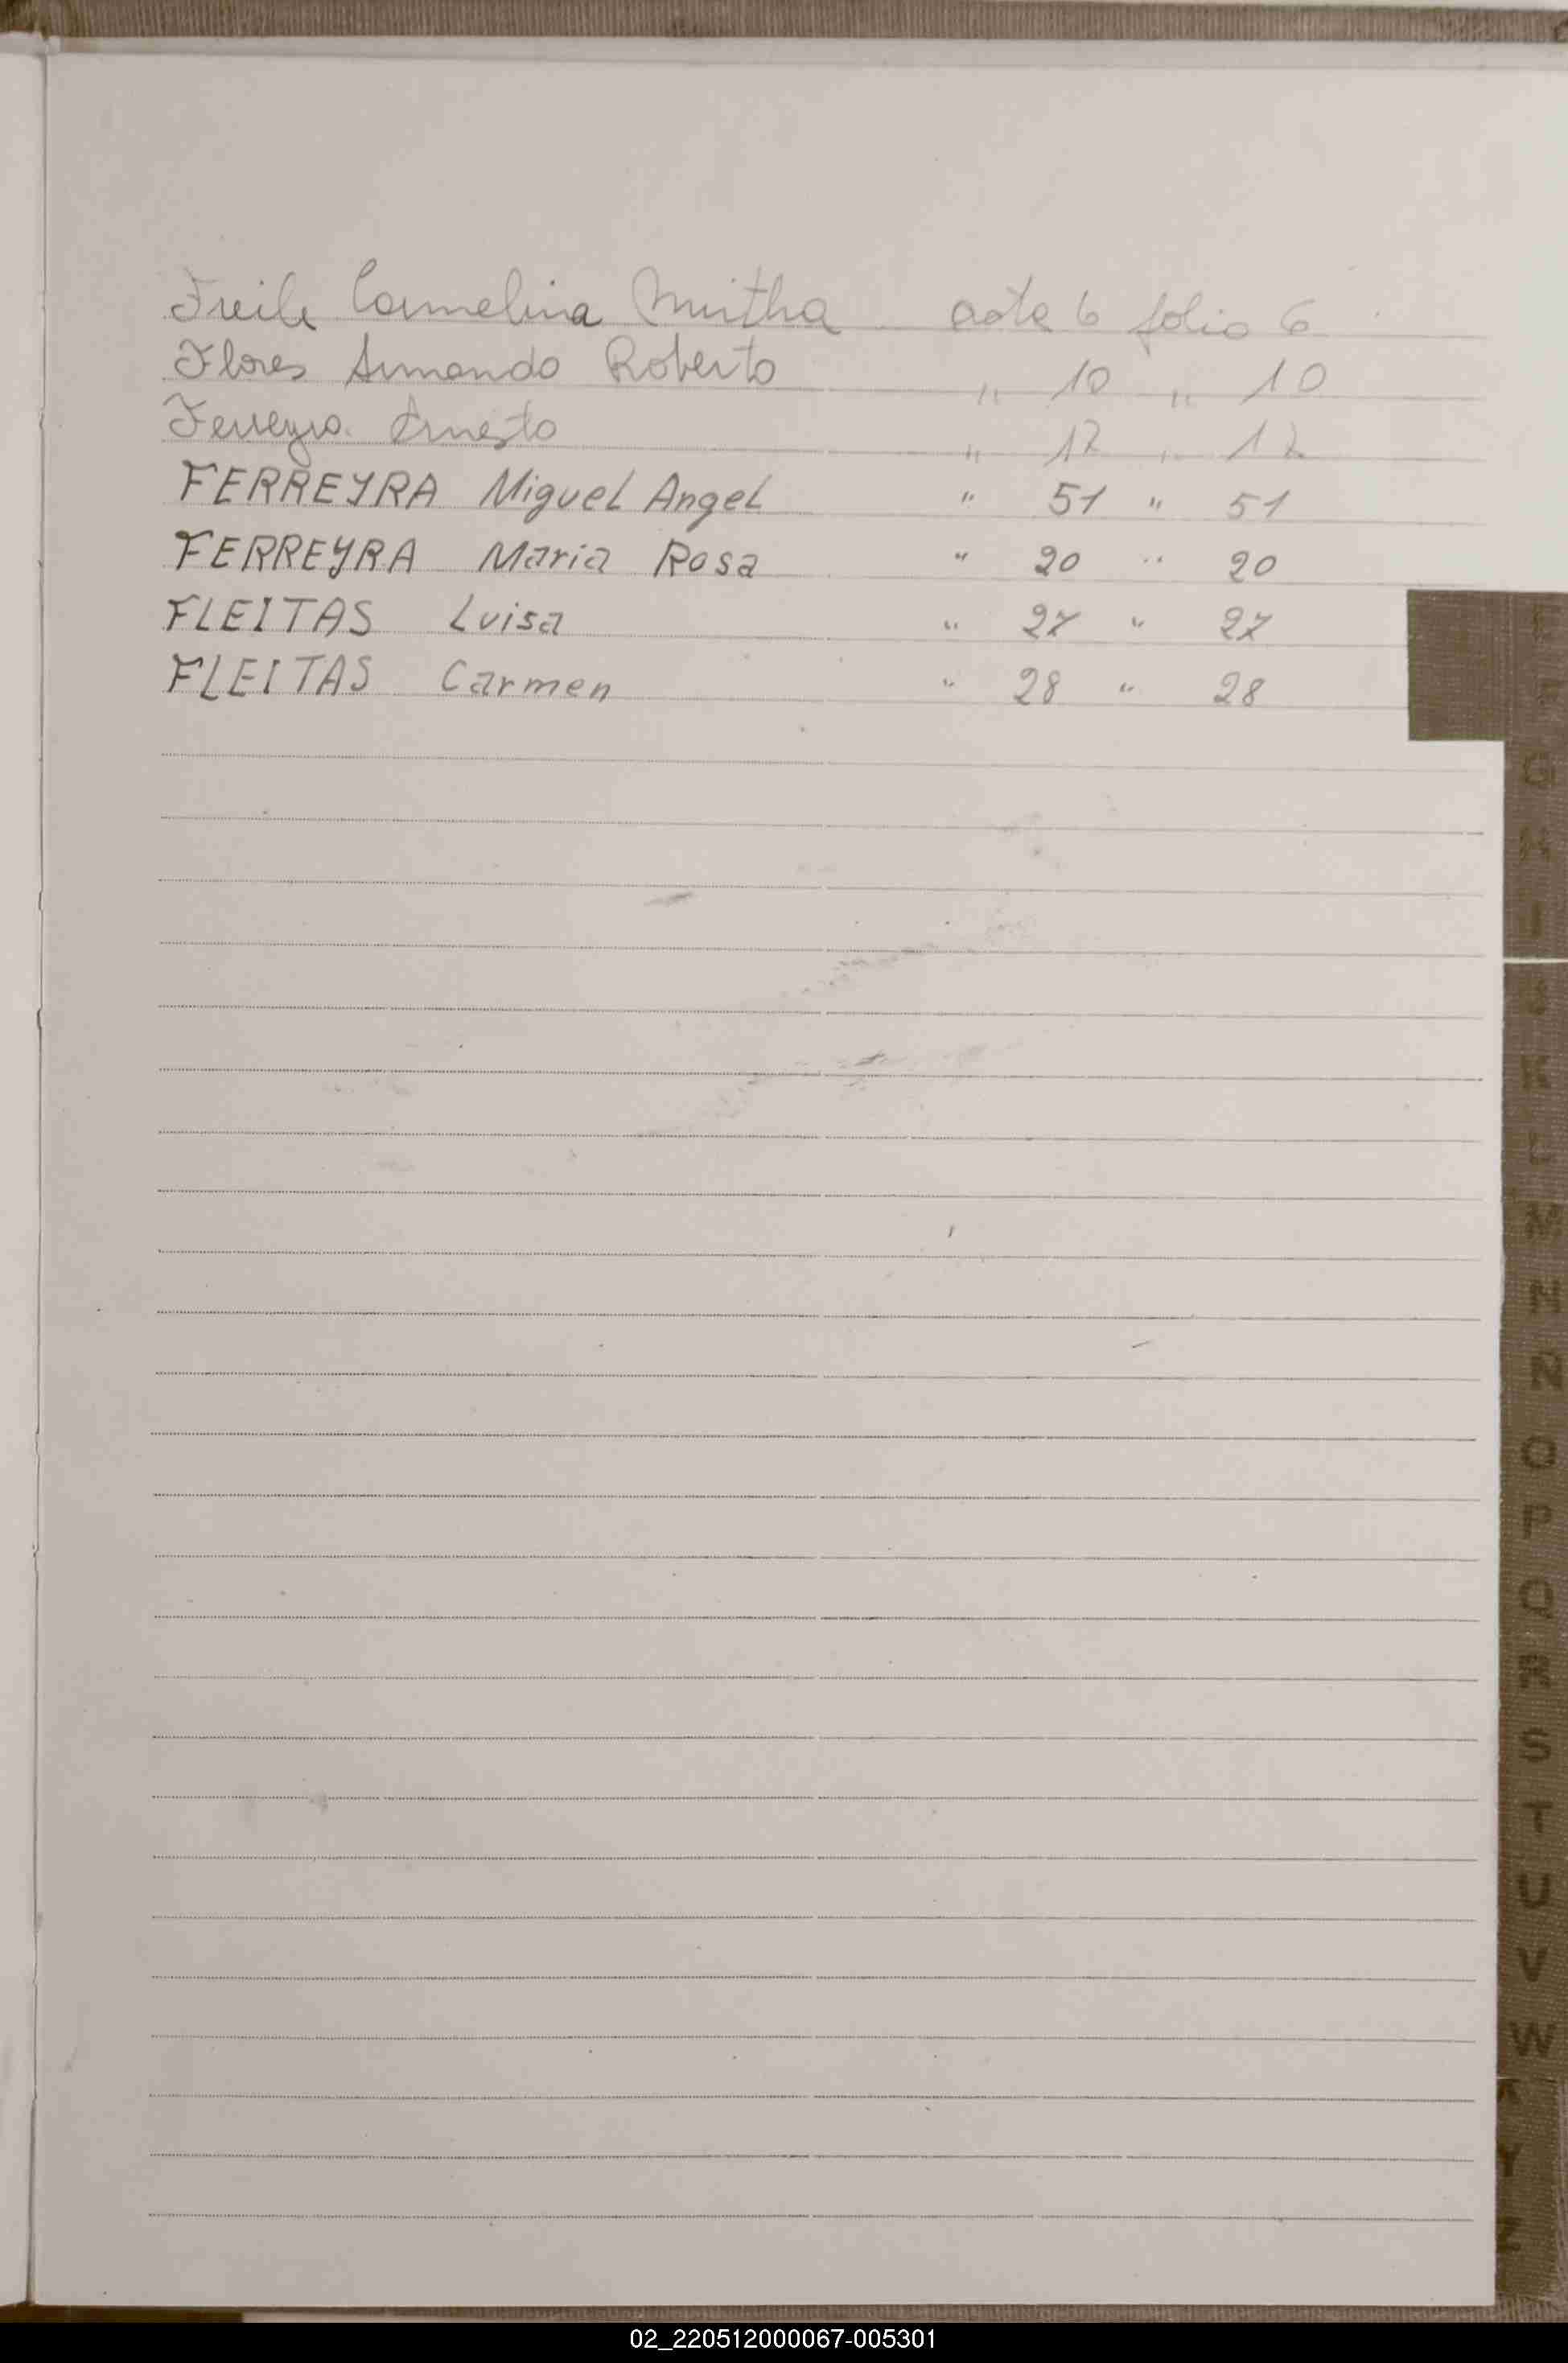 Freile Carmelina Mirtha acta 6 folio 6
Flores Armando Roberto " 10 " 10
Ferreyra Ernesto " 12 " 12
FERREYRA Miguel Angel " 51 " 51
FERREYRA Maria Rosa " 20 " 20
FLEITAS Luisa " 27 " 27
FLEITAS Carmen " 28 " 28
G
H
I
J
K
L
M
N
Ñ
O
P
Q
R
S
T
U
V
W
X
Y
Z
02_220512000067-005301